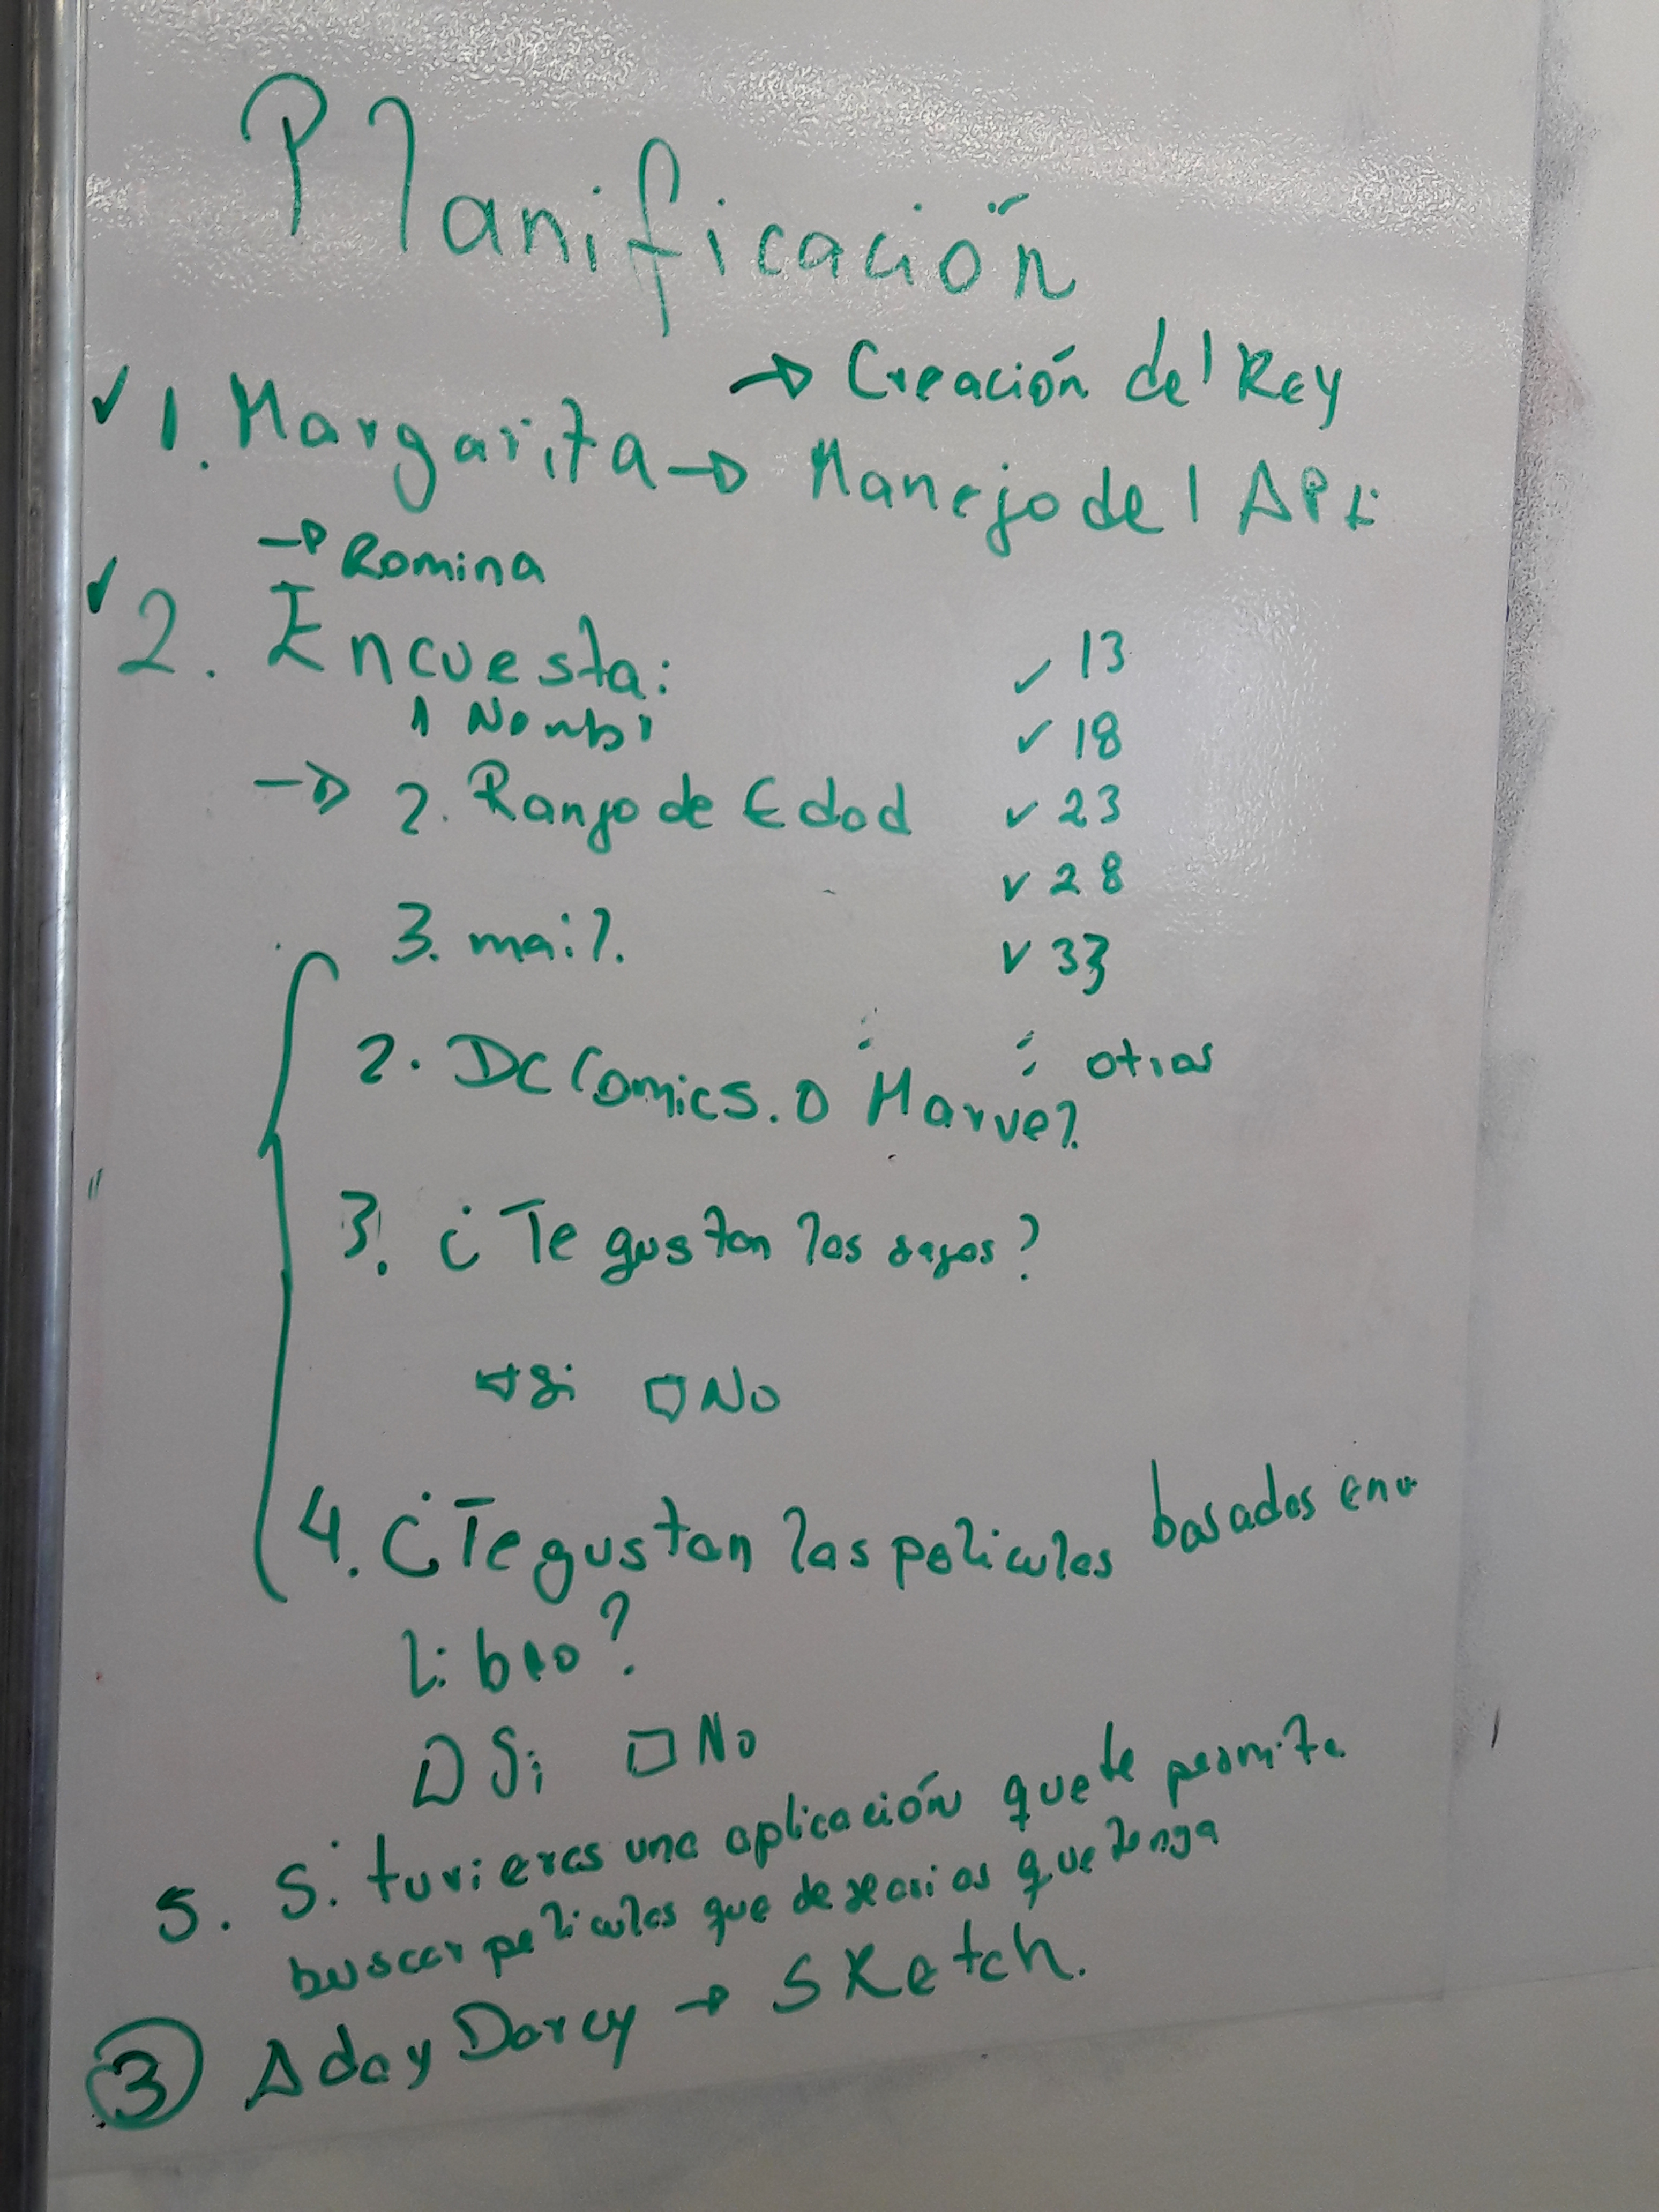 Planificación
→ Creación del Key
✓ 1. Margarita → Manejo del API
→ Romina
✓ 2. Encuesta:
1 Nombr
✓ 13
✓ 18
→ 2. Rango de Edad ✓ 23
✓ 28
3. mail. ✓ 33
2. DC Comics. o Marvel. otras
3. ¿Te gustan las sagas?
Si □ No
4. ¿Te gustan las peliculas basadas en
libro?
□ Si □ No
5. Si tuvieras una aplicación que te permita
buscar peliculas que desearias que tenga
③ Ada y Darcy → Sketch.